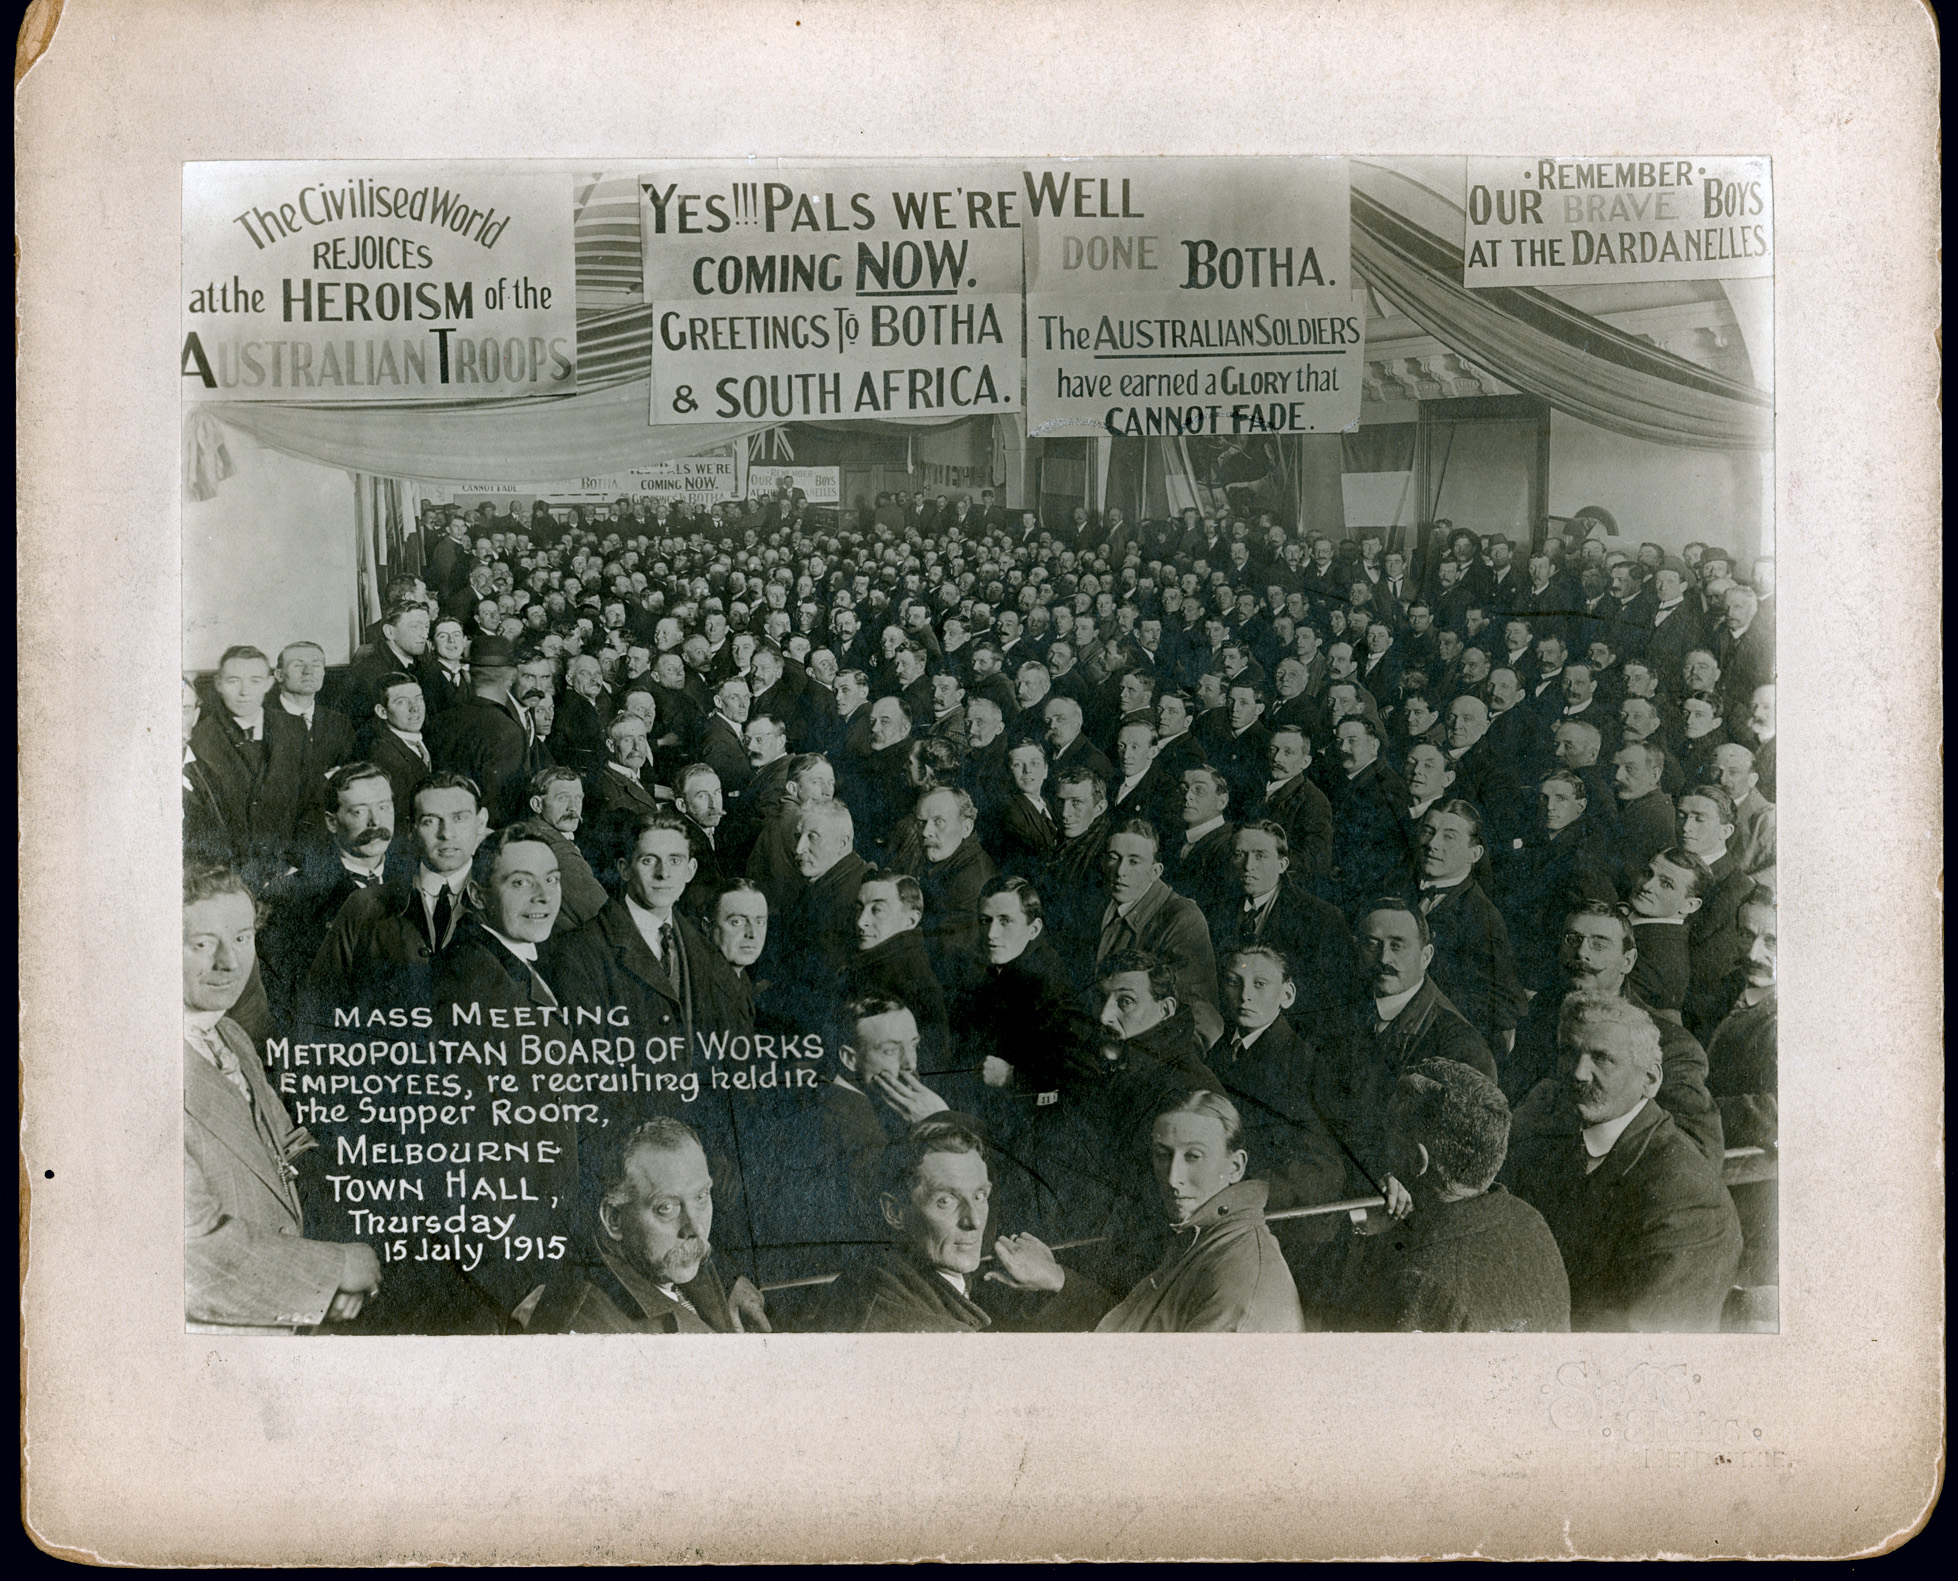 The Civilised World
REJOICES
at the HEROISM of the
AUSTRALIAN TROOPS
YES!!! PALS WE'RE
COMING NOW.
GREETINGS TO BOTHA
& SOUTH AFRICA.
WELL
DONE BOTHA.
The AUSTRALIAN SOLDIERS
have earned a GLORY that
CANNOT FADE.
• REMEMBER •
OUR BRAVE BOYS
AT THE DARDANELLES
CANNOT FADE
BOTHA.
YES!!! PALS WE'RE
COMING NOW.
GREETINGS TO BOTHA
• REMEMBER •
OUR BOYS
AT THE DARDANELLES
MASS MEETING .
METROPOLITAN BOARD OF WORKS
EMPLOYEES, re recruiting held in
the Supper Room,
MELBOURNE
TOWN HALL,
Thursday
15 July 1915
MELBOURNE.